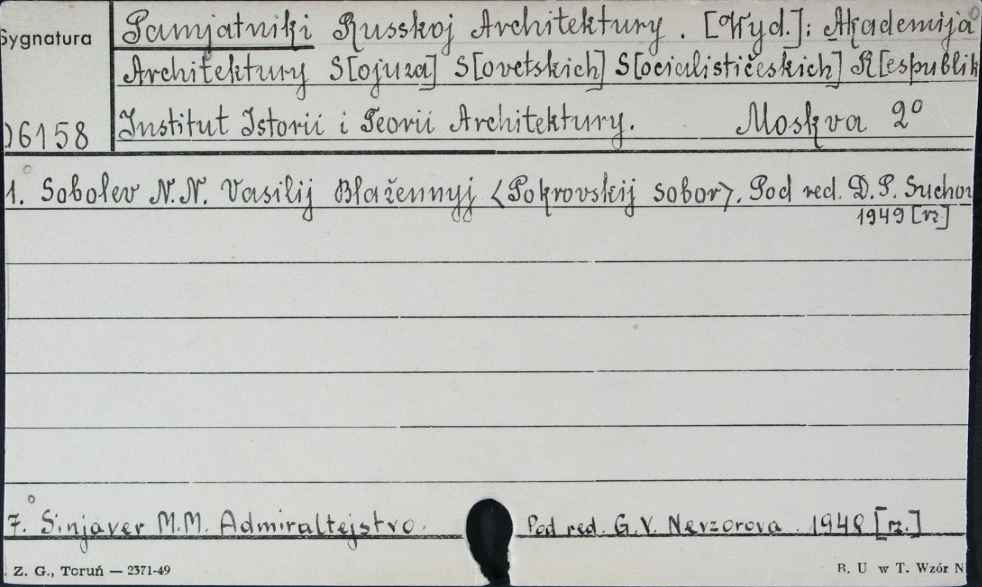 Sygnatura
Pamjatniki Russkoj Architektury. [Wyd.]: Akademija
Architektury S[ojuza] S[ovetskich] S[ocialističeskich] R[espublik
06158 Institut Istorii i Teorii Architektury. Moskva 2°
1. Sobolev N.N. Vasilij Blažennyj <Pokrovskij sobor>. Pod red. D.P. Suchov
1949 [rz]
7. Sinjaver M.M. Admiraltejstvo. Pod red. G.V. Nevzorova. 1948 [rz.]
Z. G., Toruń — 2371-49
B. U w T. Wzór N